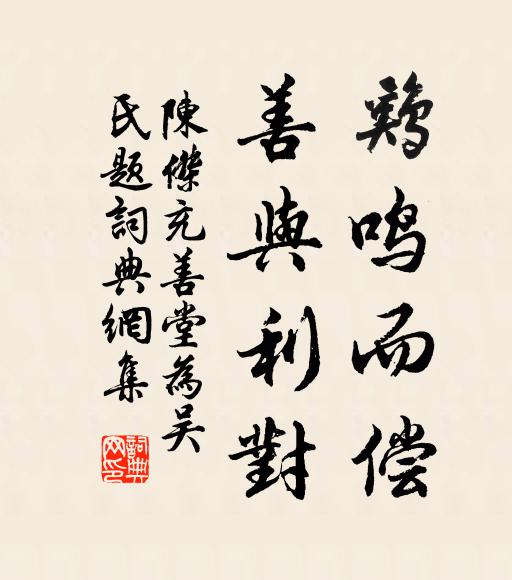 鷄鳴而偿
善與利對
陳傑充善堂為吴
氏题詞典網集
詞典网印